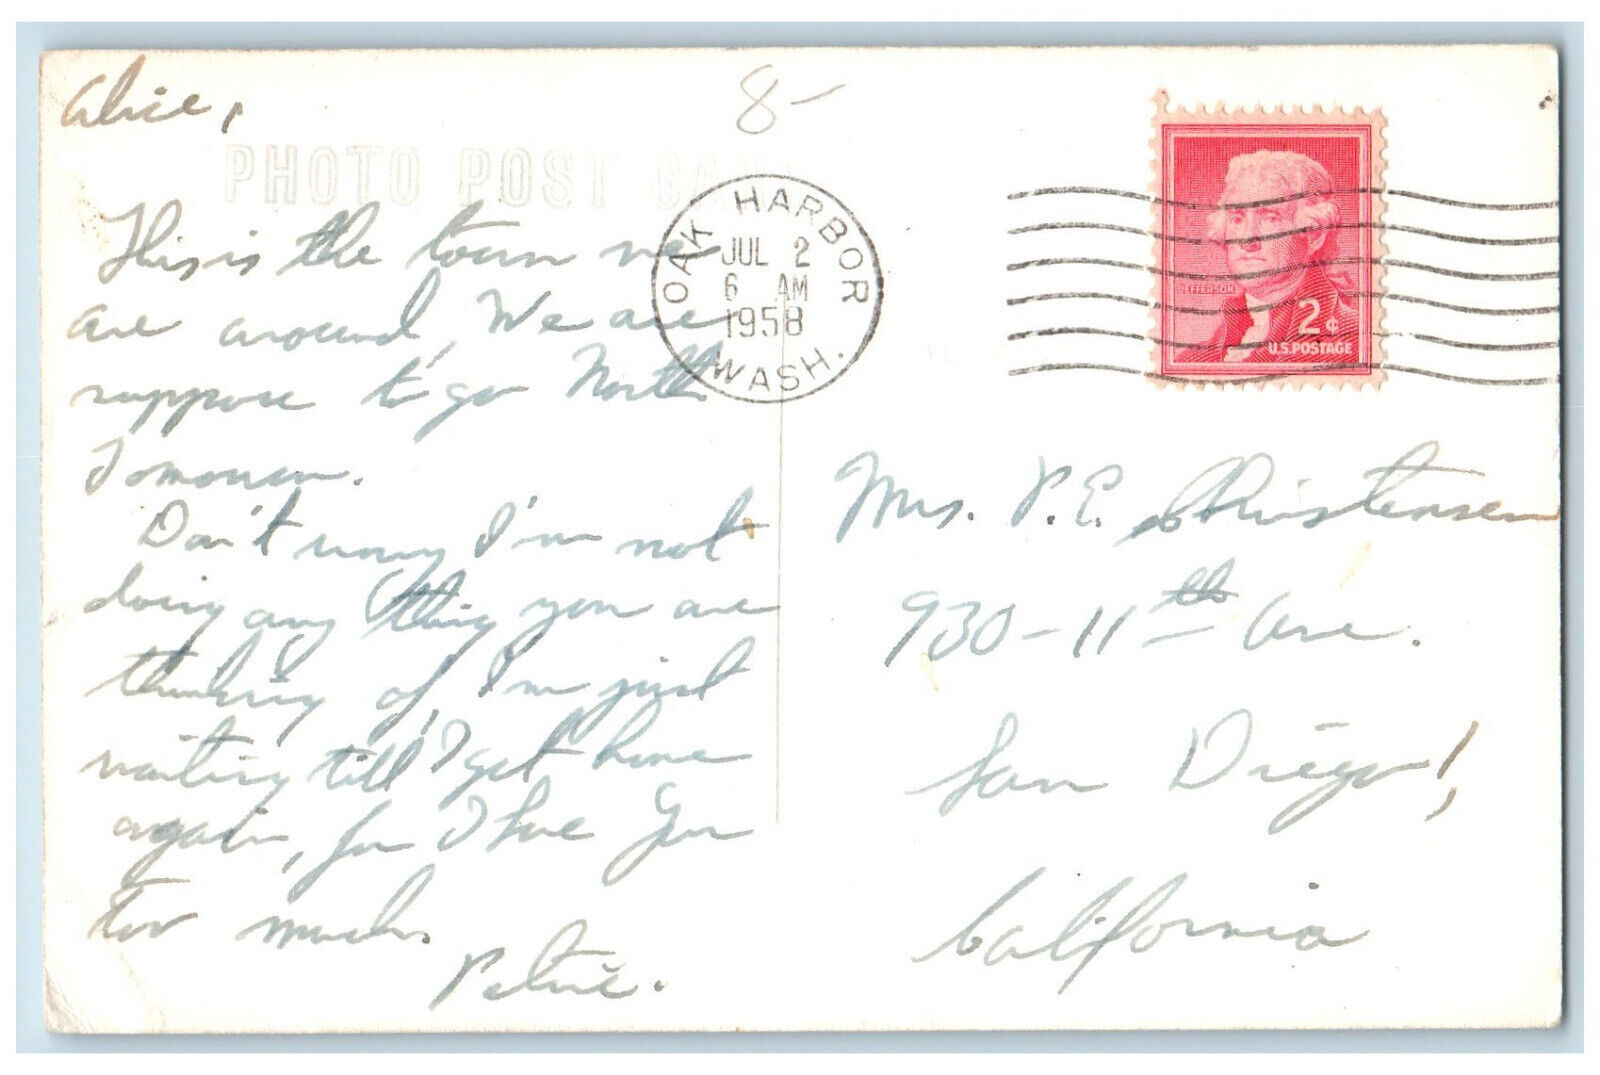 Alice,
8-
PHOTO POST CARD
OAK HARBOR
JUL 2
6 AM
1958
WASH.
JEFFERSON
2¢
U.S. POSTAGE
This is the town we
are around, We are
suppose to go North
Tomorrow.
Don't worry I'm not
doing any thing you are
thinking of, I'm just
waiting till I get home
again, for I love You
too much.
Petrie.
Mrs. P.E. Christensen
930-11th Ave.
San Diego,
California